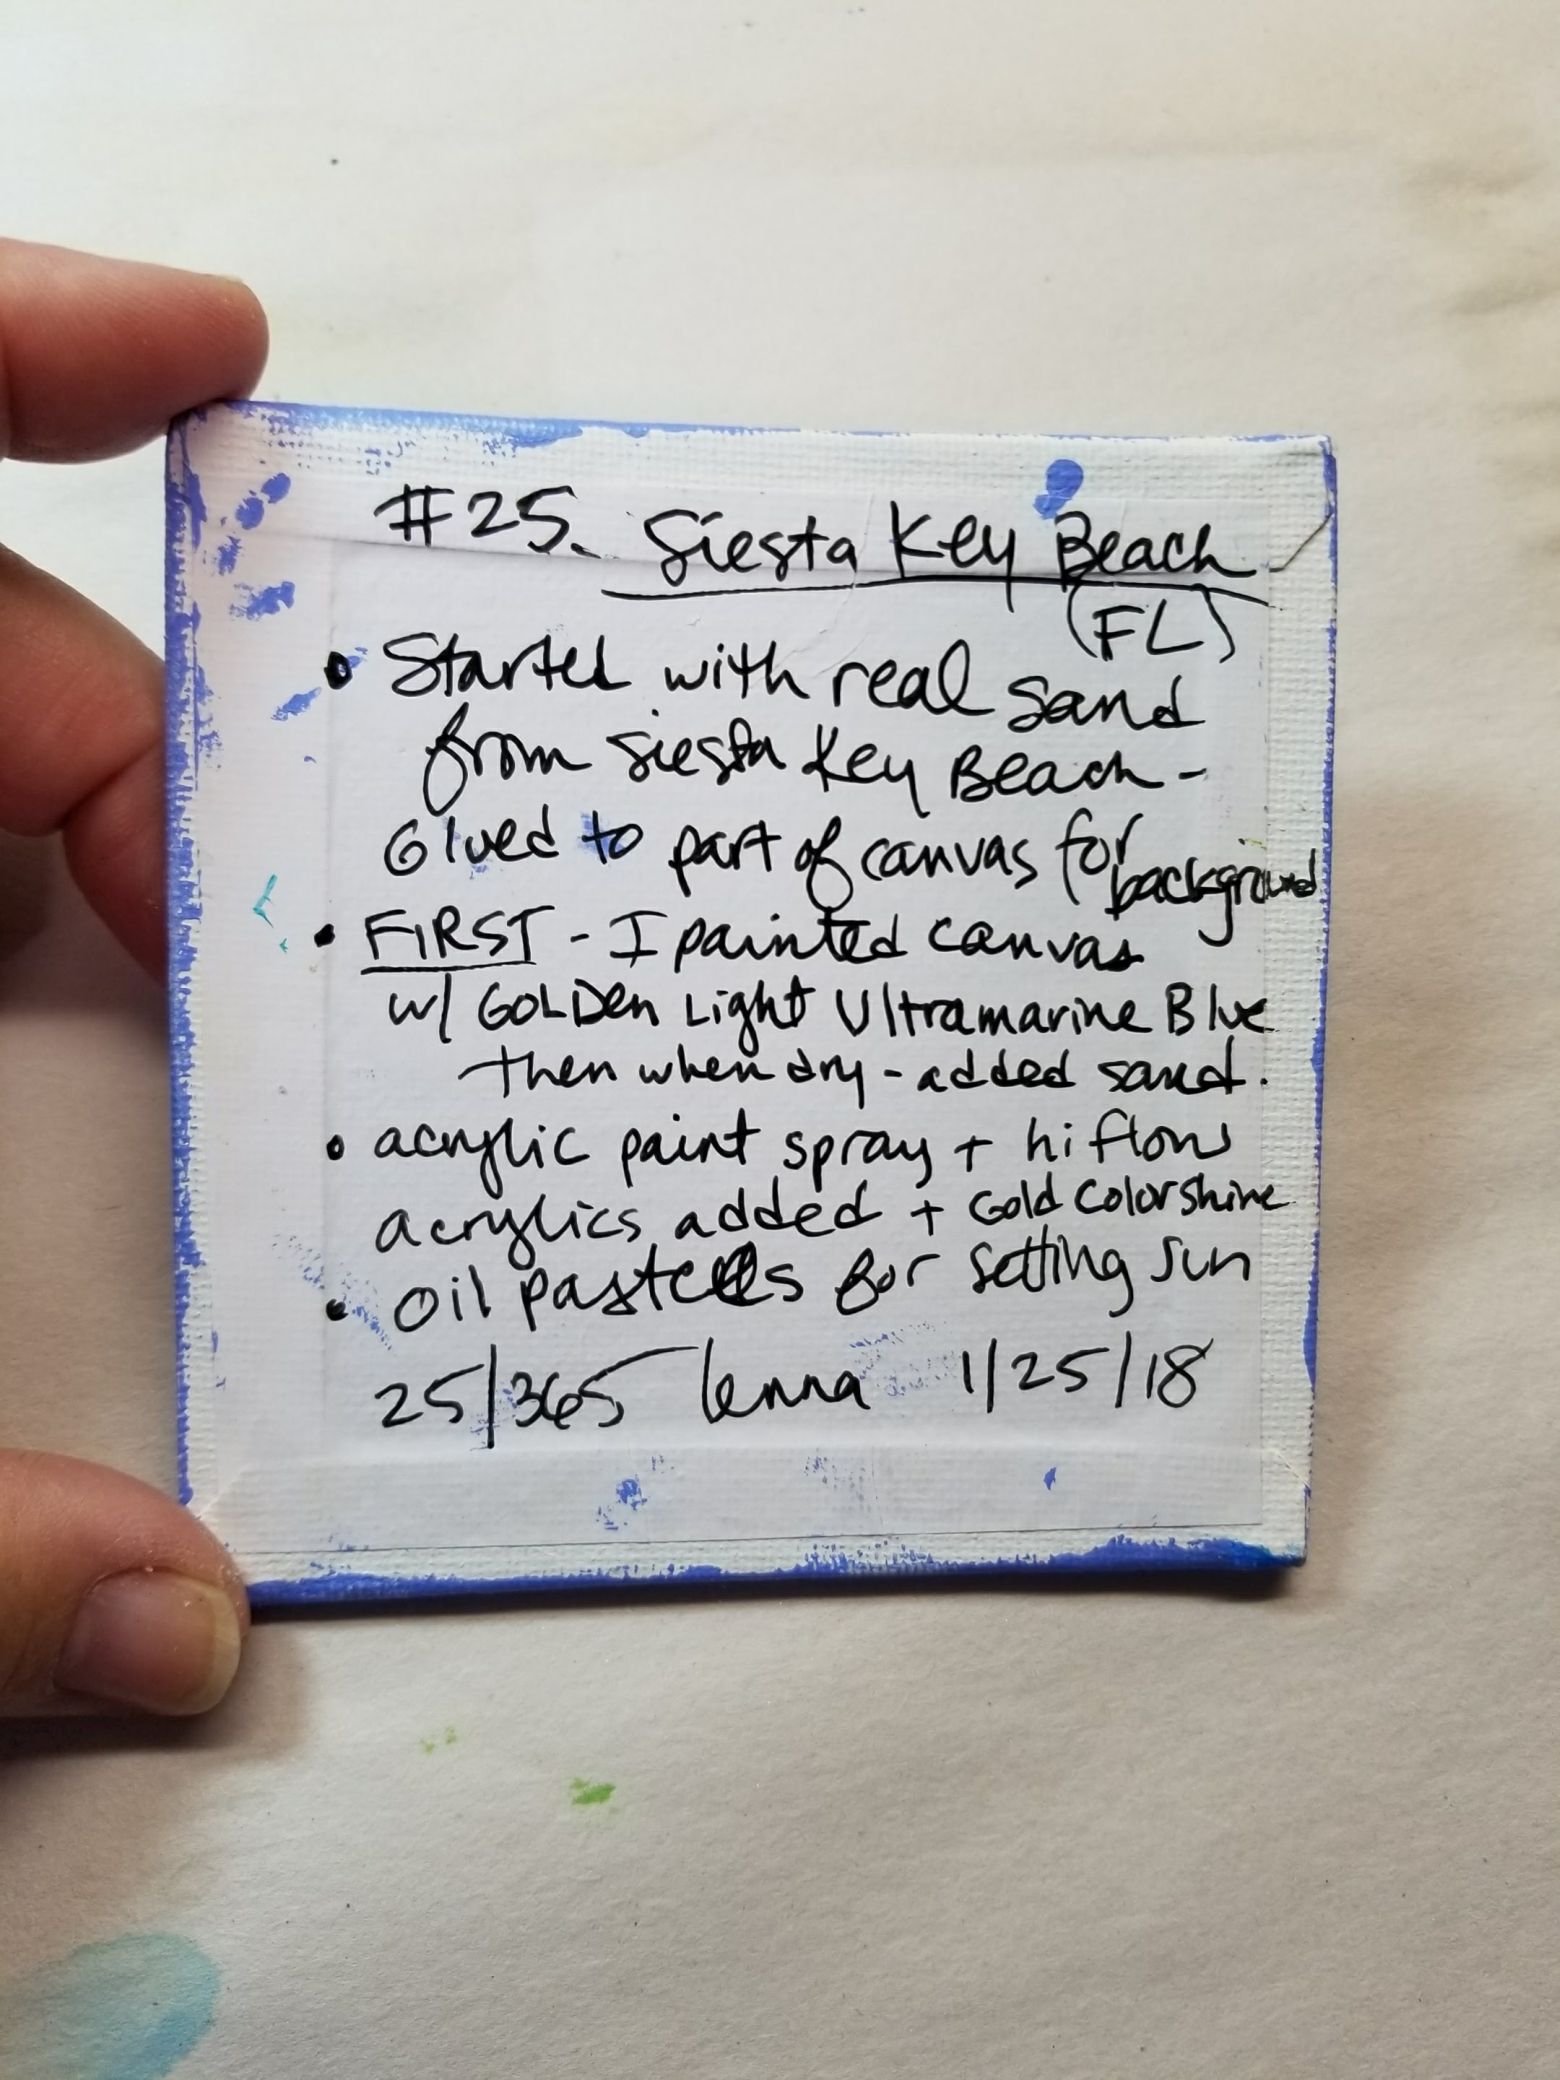 #25. Siesta Key Beach
(FL)
• Started with real sand
from Siesta Key Beach -
Glued to part of canvas for
background
• FIRST - I painted canvas
w/ GOLDen Light Ultramarine Blue
then when dry - added sand.
• acrylic paint spray + hi flow
acrylics added + Gold Colorshine
• Oil pastells for setting sun
25/365 lenna 1/25/18